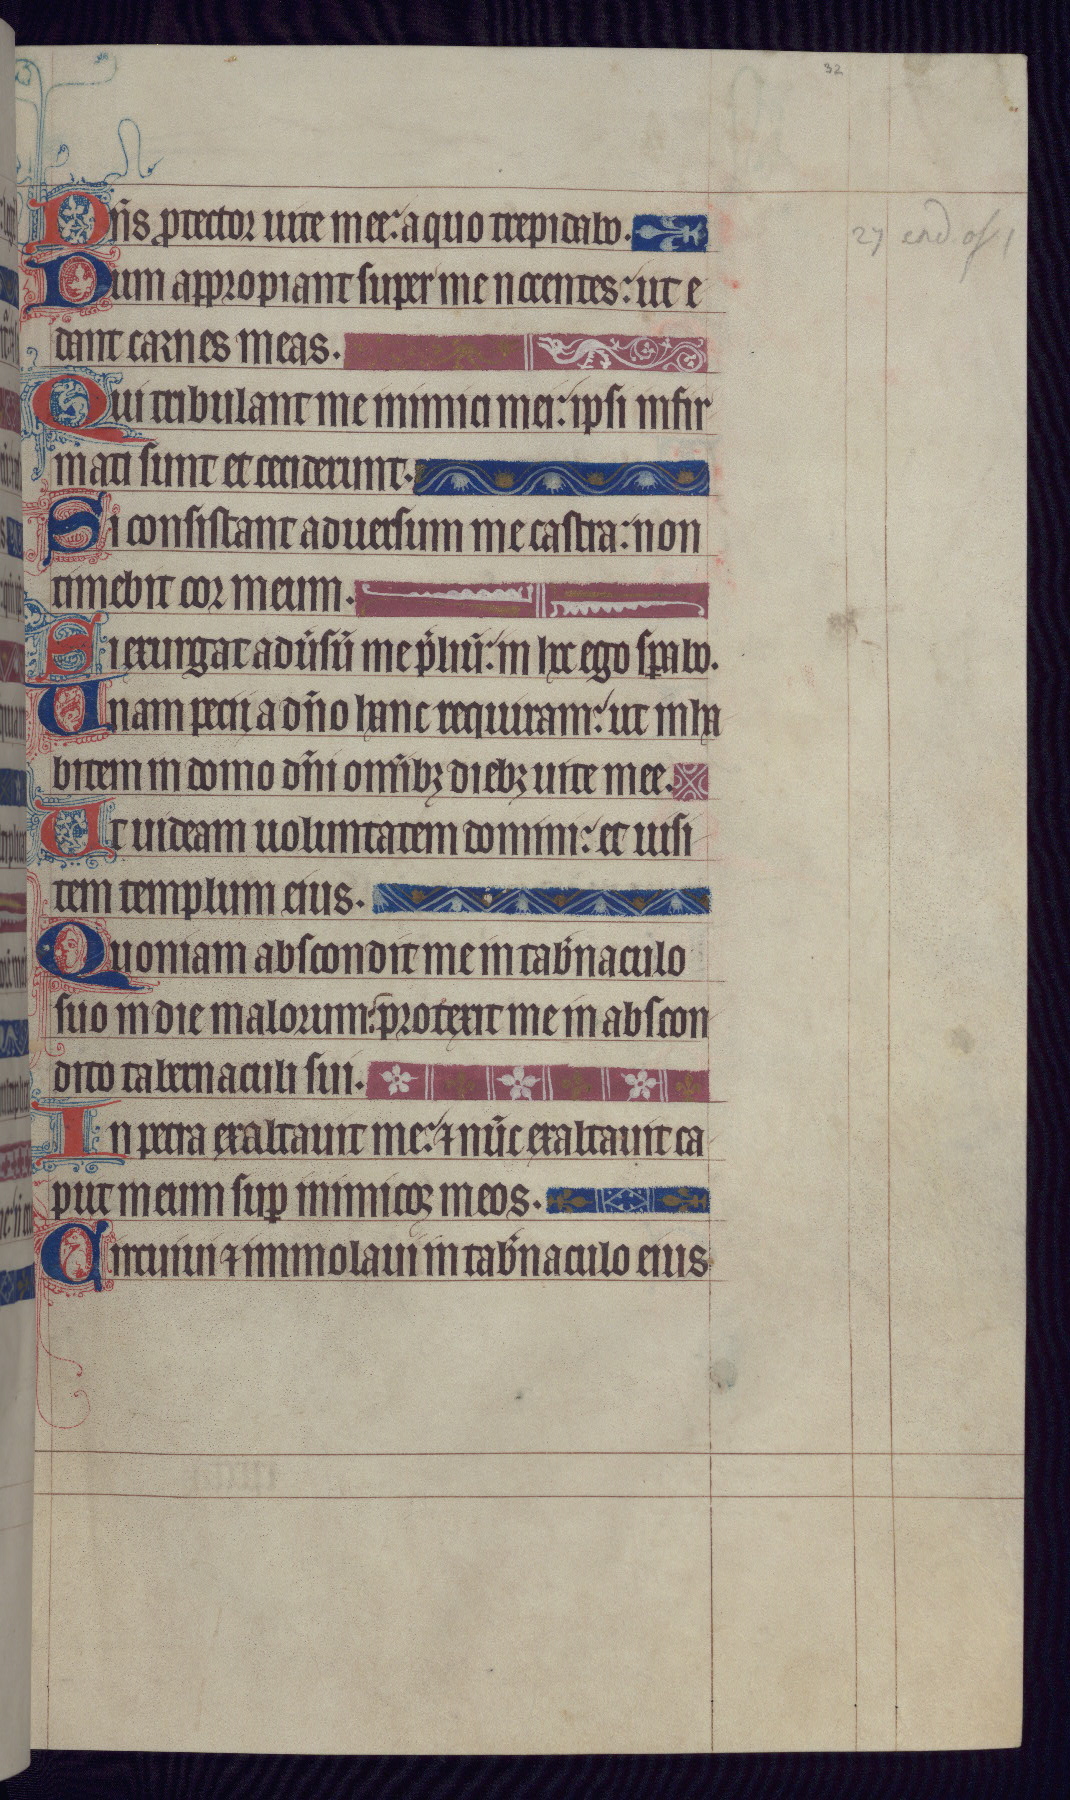 32
27 end of 1
Dn̄s ꝓtector uite mee: a quo trepidabo.
Dum appropiant super me nocentes: ut e
dant carnes meas.
Qui tribulant me inimici mei: ipsi infir
mati sunt et ceciderunt.
Si consistant aduersum me castra: non
timebit cor meum.
Si exurgat adūsū me p̄liū: in hoc ego sꝑabo.
Unam pecii a dn̄o hanc requiram: ut inha
bitem in domo dn̄i omībꝫ diebꝫ uite mee.
Ut uideam uoluntatem domini: et uisi
tem templum eius.
Quoniam abscondit me in tab̄naculo
suo in die malorum: protexit me in abscon
dito tabernaculi sui.
In petra exaltauit me: ⁊ nūc exaltauit ca
put meum suꝑ inimicoꝝ meos.
Circuiui ⁊ immolaui in tab̄naculo eius